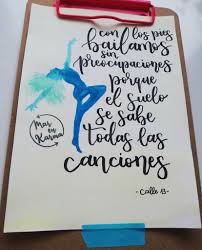 con los pies
bailamos
sin
preocupaciones
porque
el suelo
se sabe
todas las
canciones
- Calle 13 -
Mar
en
Karma